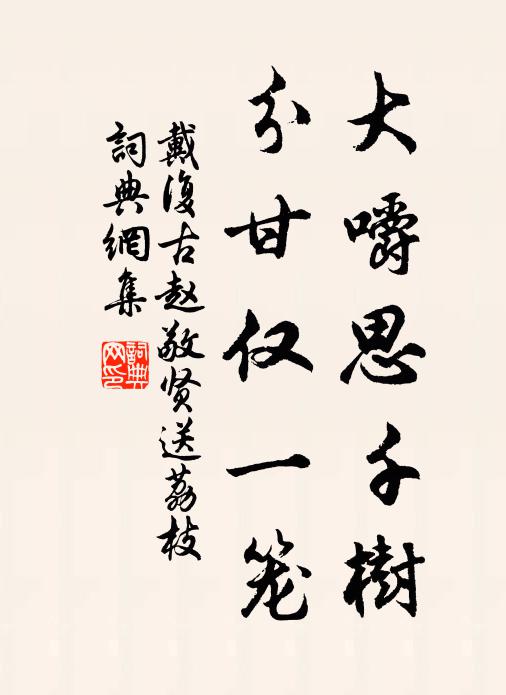 大嚼思千樹
分甘仅一笼
戴復古赵敬贤送荔枝
詞典網集
詞典
网印